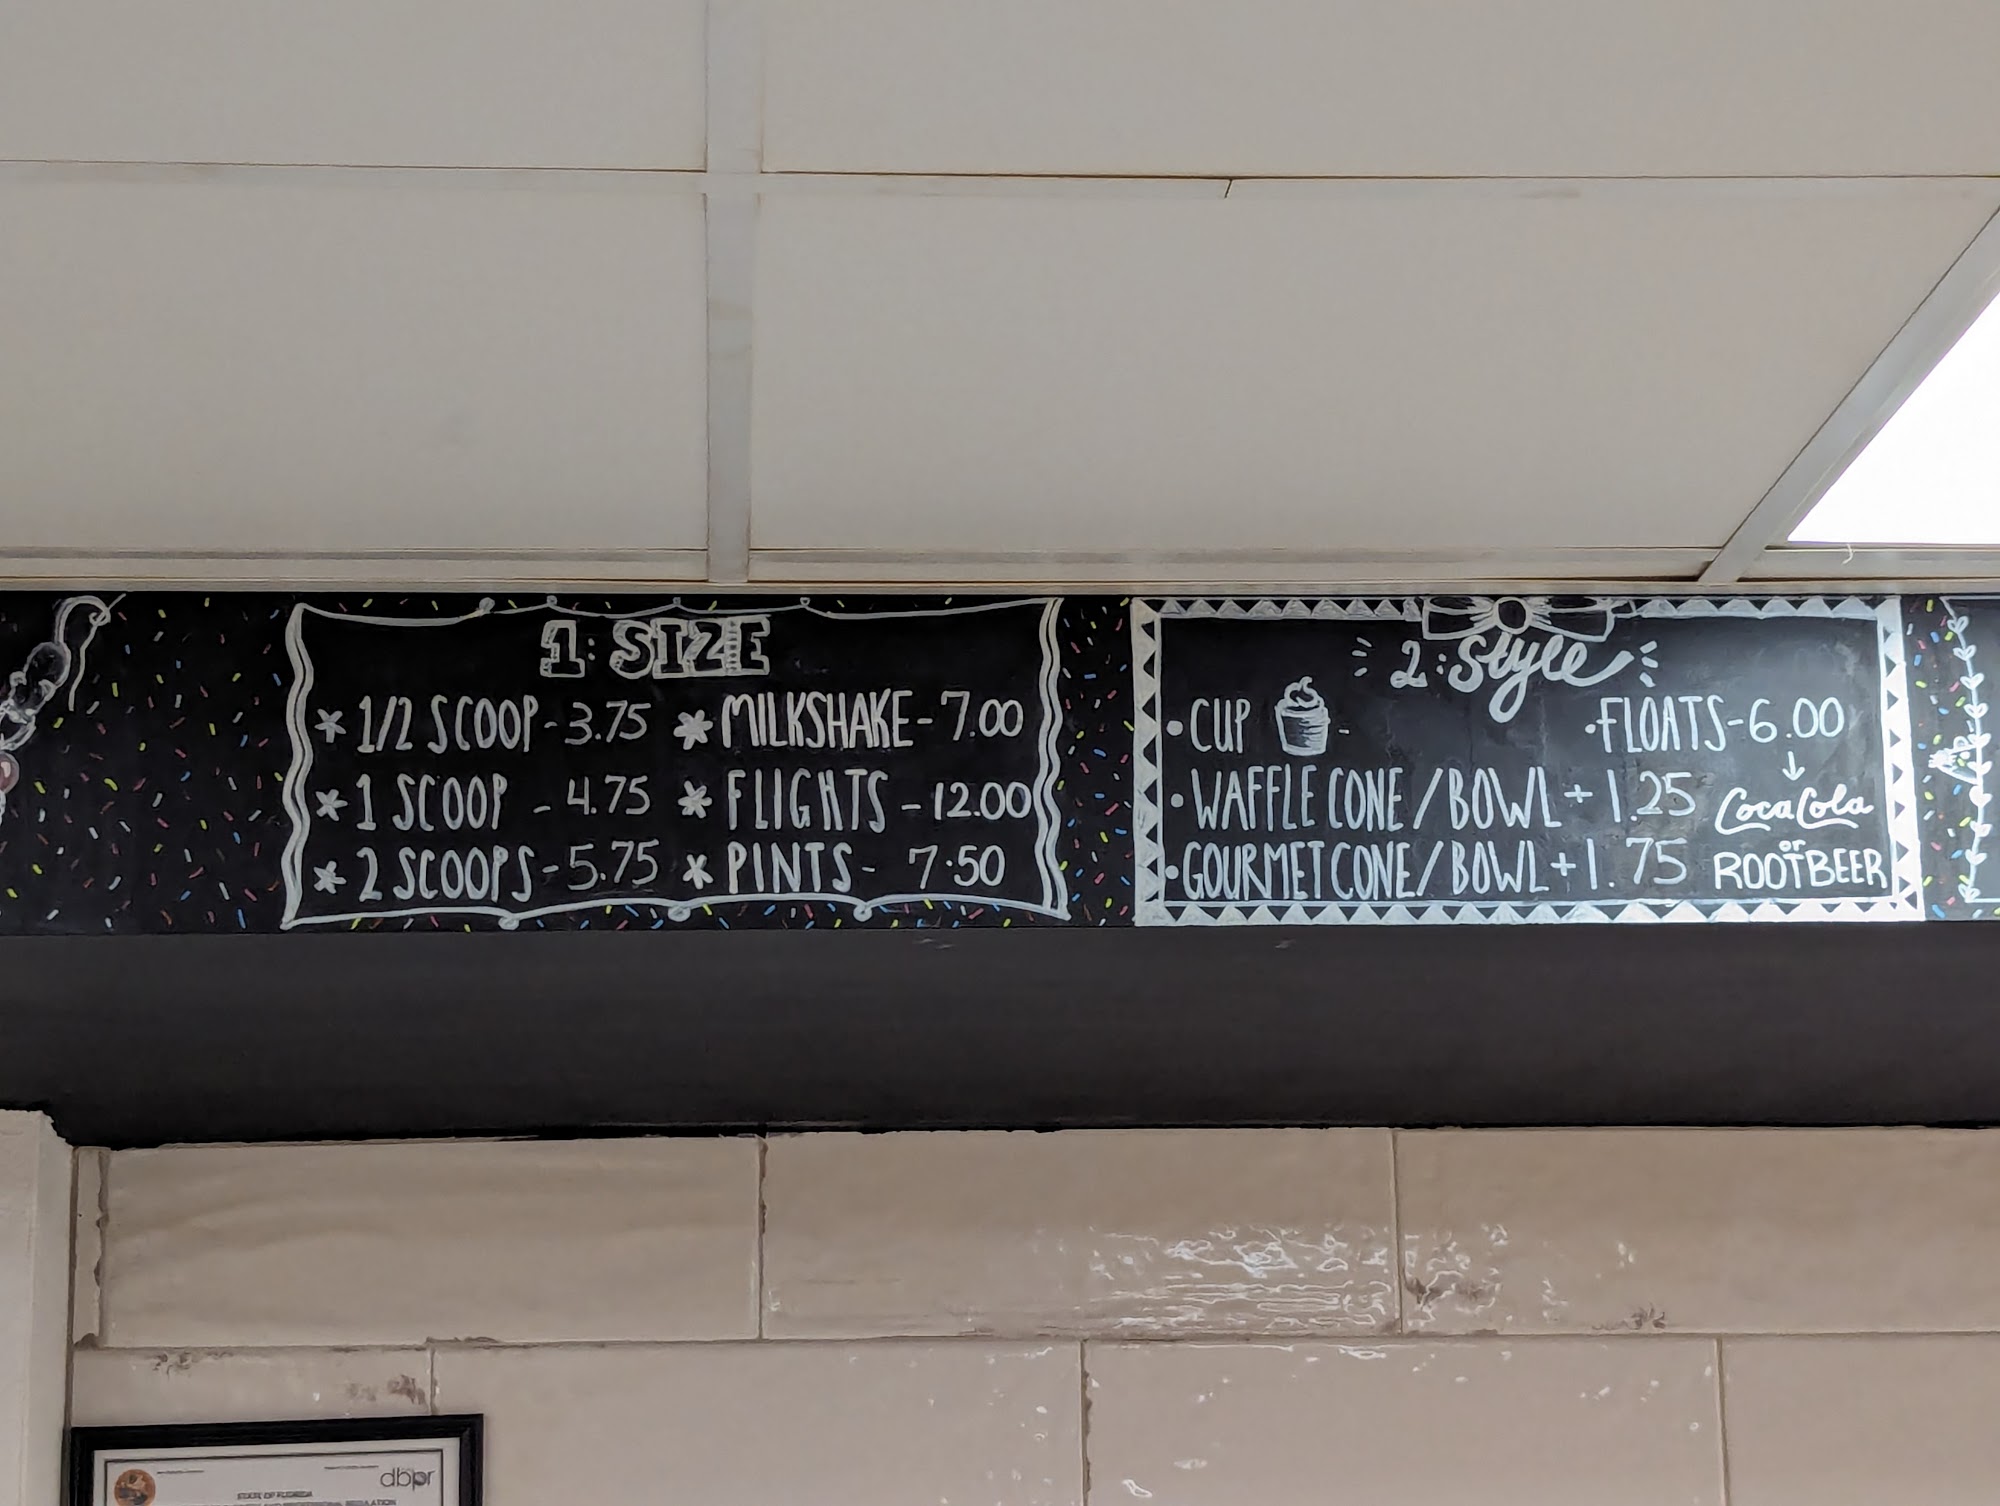 1: SIZE
* 1/2 SCOOP - 3.75
* 1 SCOOP - 4.75
* 2 SCOOPS - 5.75
* MILKSHAKE - 7.00
* FLIGHTS - 12.00
* PINTS - 7.50
2: Style
• CUP -
• WAFFLE CONE / BOWL + 1.25
• GOURMET CONE / BOWL + 1.75
• FLOATS - 6.00
↓
Coca Cola
or
ROOTBEER
dbpr
STATE OF FLORIDA